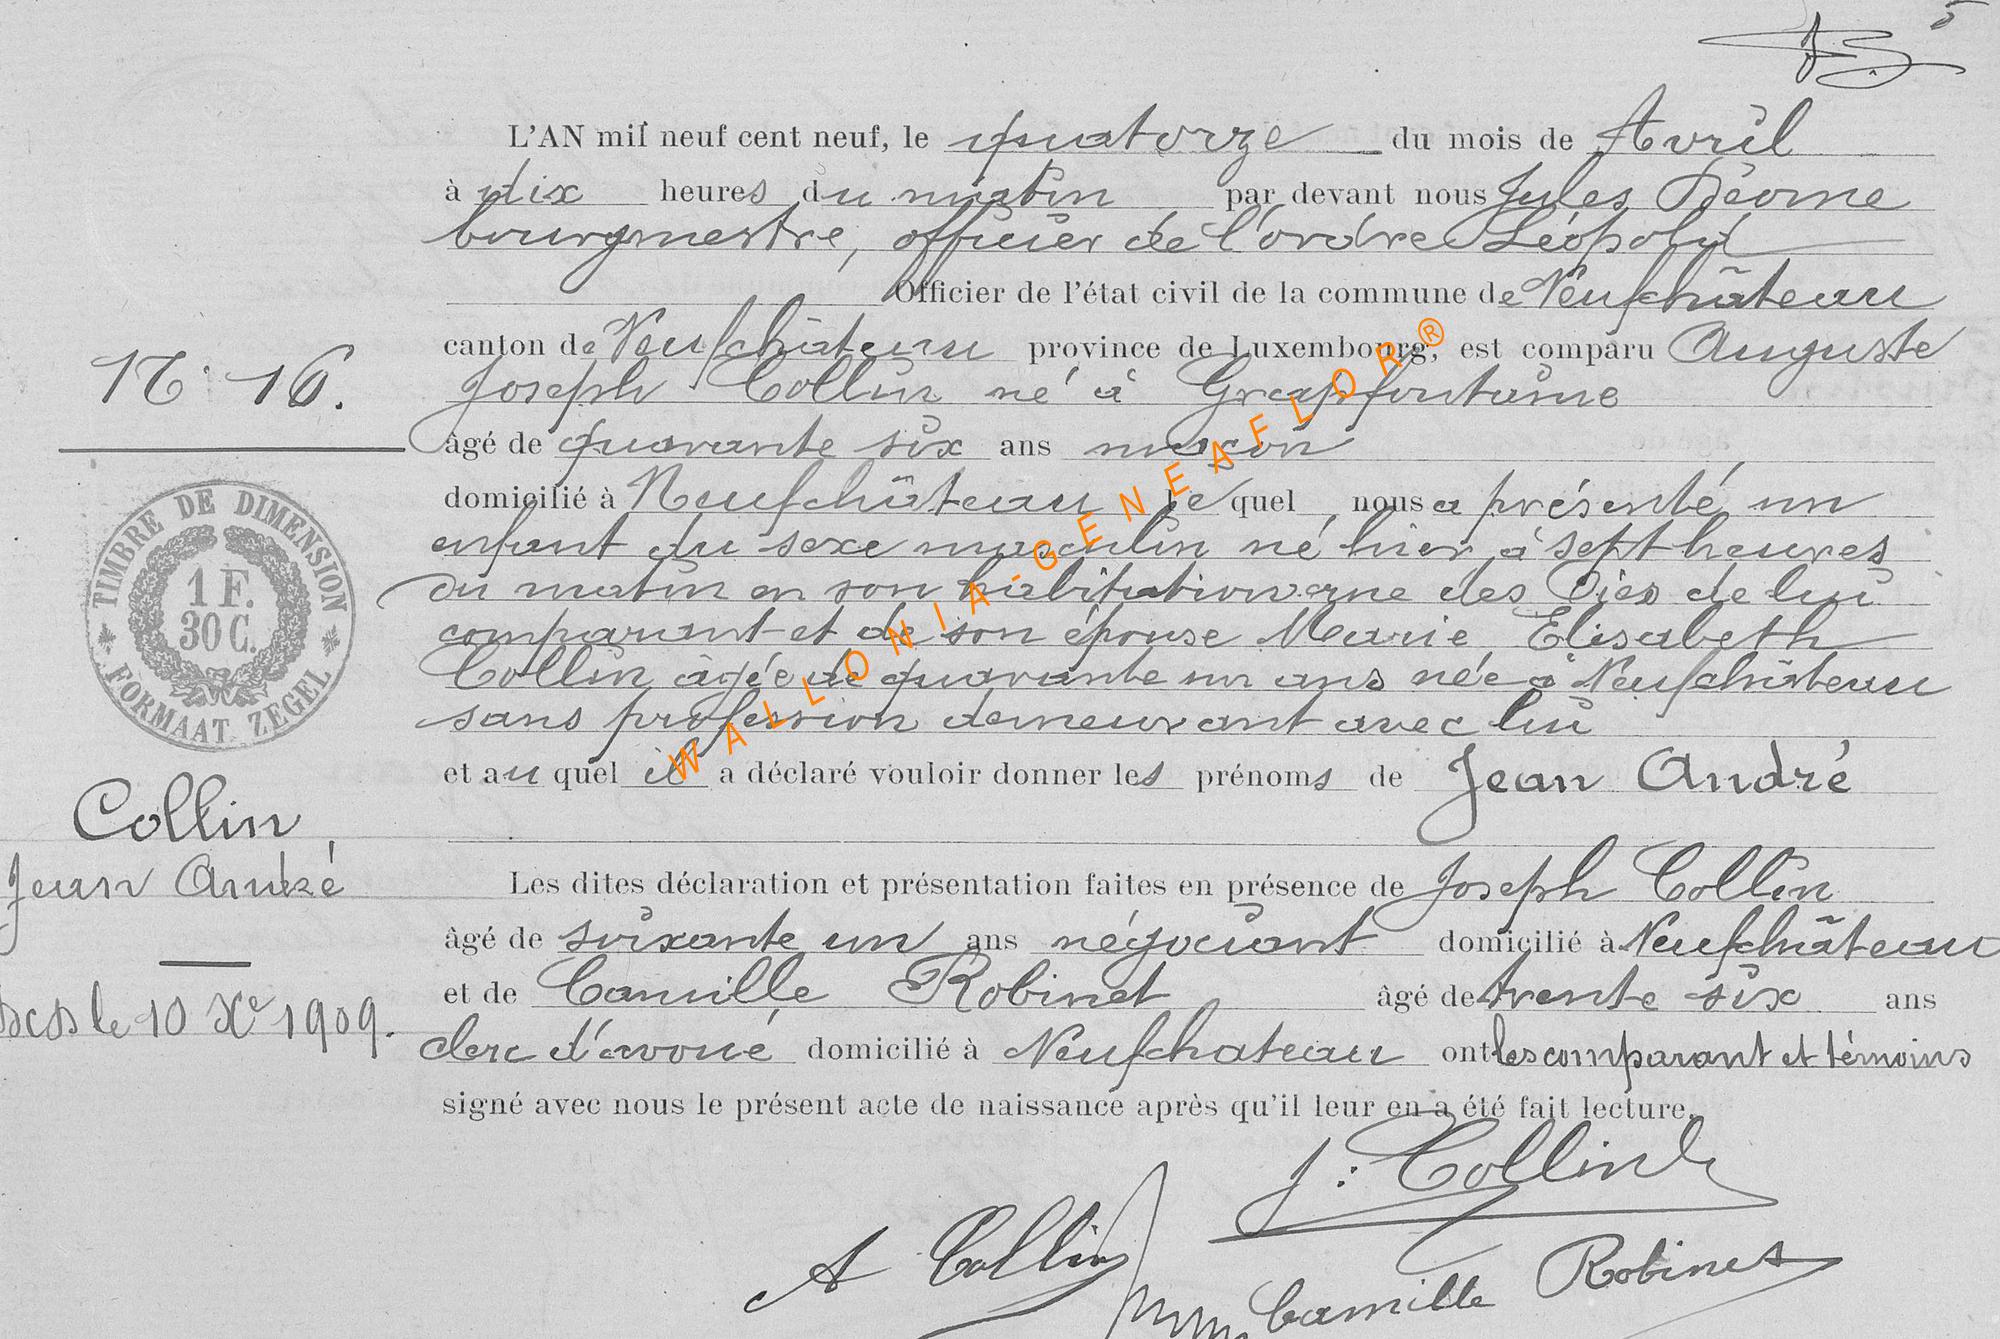 5
L'AN mil neuf cent neuf, le quatorze du mois de Avril
à dix heures du matin par devant nous Jules
bourgmestre, officier de l'ordre Léopold
Officier de l'état civil de la commune de Neufchâteau
canton de Neufchâteau province de Luxembourg, est comparu Auguste
N: 16.
Joseph Collin né à Grapfontaine
âgé de quarante six ans maçon
domicilié à Neufchâteau lequel nous a présenté un
enfant du sexe masculin né hier à sept heures
du matin en son habitation des de lui
comparant et de son épouse Marie Elisabeth
Collin âgée de quarante un ans née à Neufchâteau
sans profession demeurant avec lui
et au quel il a déclaré vouloir donner les prénoms de Jean André
TIMBRE DE DIMENSION
1 F.
30 C.
FORMAAT ZEGEL
Collin
Jean André
le 10 Xe 1909.
Les dites déclaration et présentation faites en présence de Joseph Collin
âgé de soixante un ans négociant domicilié à Neufchâteau
et de Camille Robinet âgé de trente six ans
clerc d'avoué domicilié à Neufchateau ont les comparant et témoins
signé avec nous le présent acte de naissance après qu'il leur en a été fait lecture.
J: Collin
A Collin
Camille Robinet
WALLONIA-GENEAFLOR®